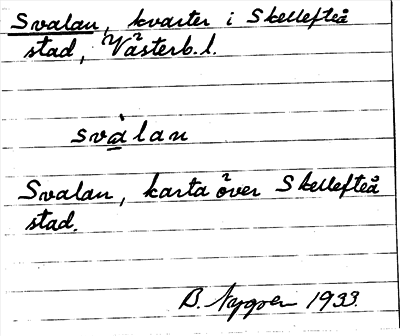 Svalan, kvarter i Skellefteå
stad, Västerb.l.
svàlan
Svalan, karta över Skellefteå
stad.
B. Nygren 1933.